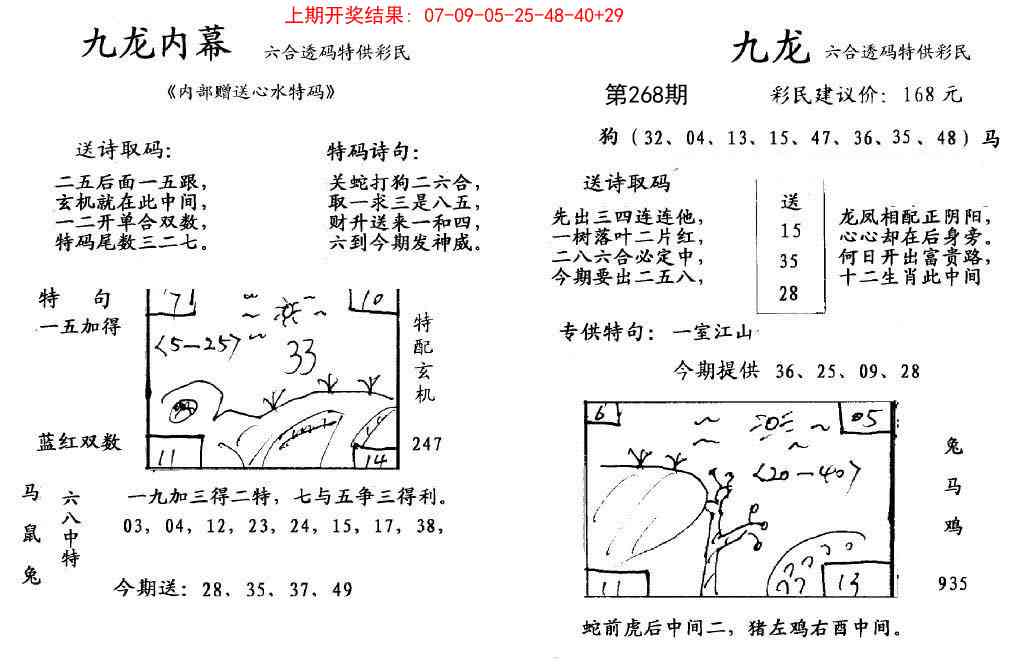 上期开奖结果: 07-09-05-25-48-40+29
九龙内幕 六合透码特供彩民
《内部赠送心水特码》
送诗取码:
二五后面一五跟,
玄机就在此中间,
一二开单合双数,
特码尾数三二七。
特码诗句:
关蛇打狗二六合,
取一求三是八五,
财升送来一和四,
六到今期发神威。
特 句
一五加得
蓝红双数
71
10
<5-25>
33
11
14
特配玄机
247
马鼠兔
六八中特
一九加三得二特, 七与五争三得利。
03, 04, 12, 23, 24, 15, 17, 38,
今期送: 28、35、37、49
九龙 六合透码特供彩民
第268期 彩民建议价: 168元
狗(32、04、13、15、47、36、35、48)马
送诗取码
先出三四连连他,
一树落叶二片红,
二八六合必定中,
今期要出二五八,
送
15
35
28
龙凤相配正阴阳,
心心却在后身旁。
何日开出富贵路,
十二生肖此中间
专供特句: 一室江山
今期提供 36、25、09、28
6
05
<20-40>
11
13
兔
马
鸡
935
蛇前虎后中间二, 猪左鸡右酉中间。